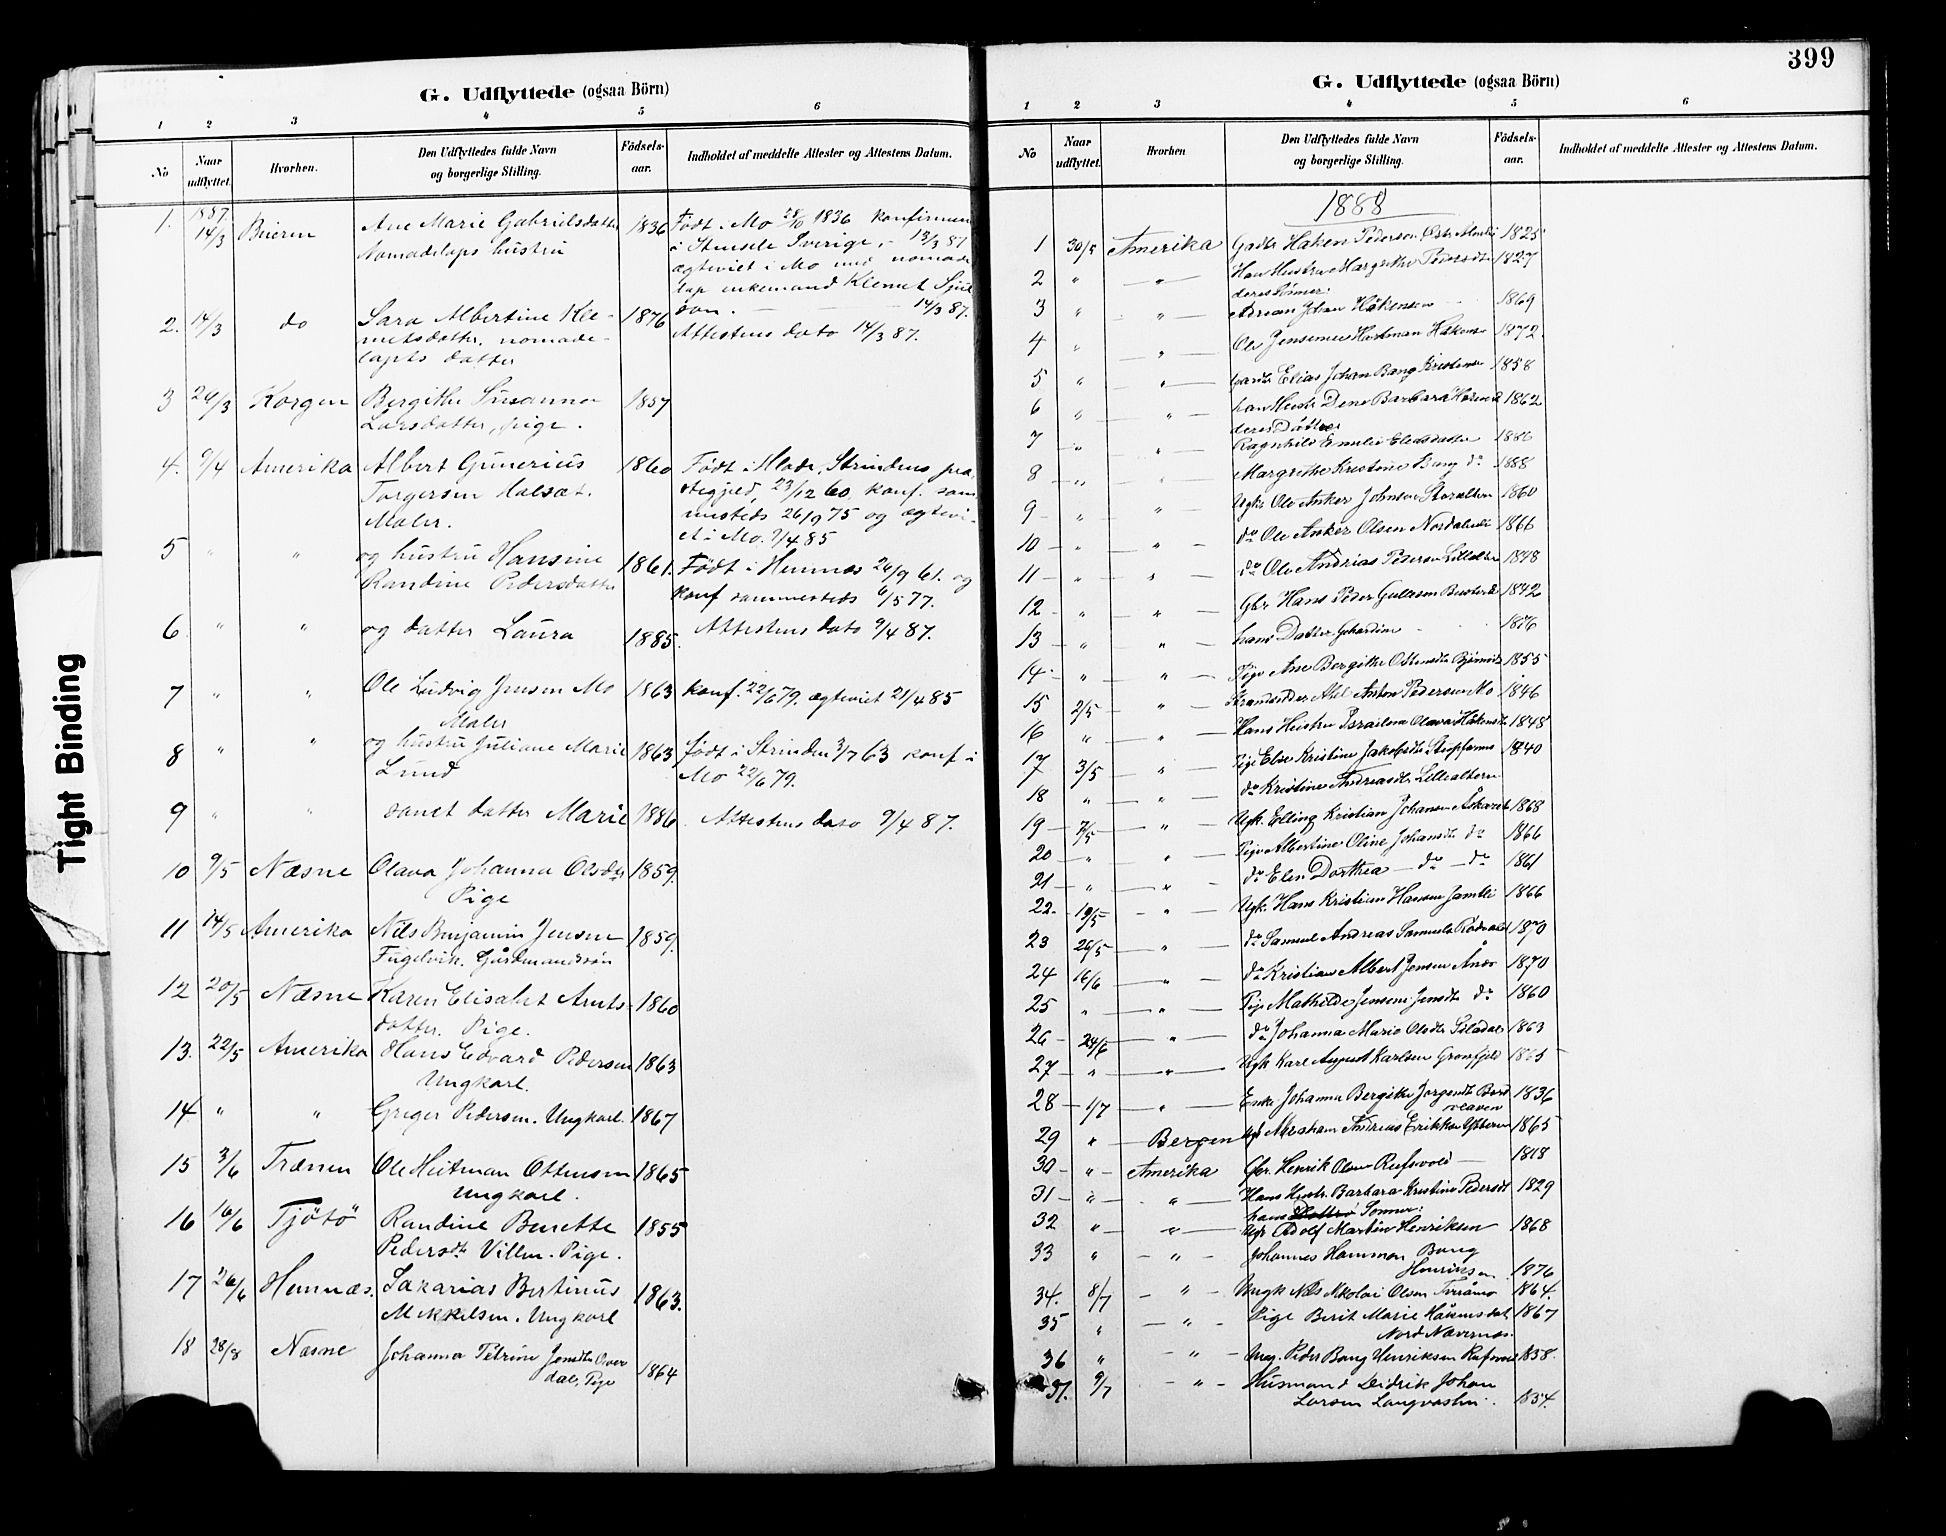 399
G. Udflyttede (ogsaa Börn)
1 2 3 4 5 6
No
Naar udflyttet.
Hvorhen.
Den Udflyttedes fulde Navn og borgerlige Stilling.
Födsels-aar.
Indholdet af meddelte Attester og Attestens Datum.
1. 1887. 14/3 Beieren Ane Marie Gabrielsdatter 1836 Født i Mo 28/10 1836 konfirmeret
Nomadelaps hustru i Stensele Sverige, - 13/3 87
ægteviet i Mo med nomade
lap enkemand Klemet Sjul
son. - 14/3 87.
2. 14/3 do Sara Albertine Kle- 1876 Attestens dato 14/3 87.
metsdatter, nomade-
laps datter
3 24/3 Korgen Bergithe Susanna 1857
Larsdatter, pige.
4. 9/4 Amerika Albert Gunerius 1860 Født i Hlade, Strindens præ
Torgersen Halsæt. stegjeld, 23/12 60, konf. sam
Maler. mesteds 26/9 75 og ægtevi-
et i Mo. 7/4 85
5 " " og hustru Hansine 1861. Født i Hemnæs 26/9 61. og
Randine Pedersdatter konf sammesteds 6/5 77.
6 " " og datter Laura 1885. Attestens dato 9/4 87.
7 " " Ole Ludvig Jensen Mo 1863 konf. 22/6 79. ægteviet 21/4 85
Maler
8 " " og hustru Juliane Marie 1863 født i Strinden 3/7 63 konf i
Lund Mo 22/6 79.
9 " " samt datter Marie 1886. Attestens dato 9/4 87.
10 9/5 Næsne Olava Johanna Olsdtr 1859.
Pige
11 14/5 Amerika Nils Benjamin Jensen 1859.
Fugelvik. Gårdmandssøn
12 20/5 Næsne Karen Elisabet Arnts- 1860
datter. Pige.
13. 22/5 Amerika Hans Edvard Pedersen 1863
Ungkarl.
14 " " Greger Pedersen. Ungkarl. 1867
15 3/6 Trænen Ole Heitman Ottensen 1865
Ungkarl.
16 16/6 Tjötö Randine Benette 1855
Pedersdtr Villm. Pige.
17 26/6 Hemnæs. Sakarias Bertinus 1863.
Mikkelsen. Ungkarl
18 28/8 Næsne Johanna Petrine Jensdtr Over 1864
dal, Pige
G. Udflyttede (ogsaa Börn)
1 2 3 4 5 6
No
Naar udflyttet.
Hvorhen
Den Udflyttedes fulde Navn og borgerlige Stilling.
Födsels-aar.
Indholdet af meddelte Attester og Attestens Datum.
1888
1 30/4 Amerika Gadbr Haken Pederson 1825
2 " " Hans Hustru Margrethe Pedersdtr 1827
deres Sønner:
3 " " Adrian Johan Håkensen 1869
4 " " Ole Jensenius Hartman Håkens 1872.
5 " " Elias Johan Bang Kristensen 1858
6 " " hans Hustr Dene Barbara Håkensd 1862
deres Døttre
7 " " Ragnhild Emilie Eliasdatter 1886
8 " " Margrethe Kristine Bang do 1888
9 " " Ugk Ole Anker Johnsen Storaltern 1860
10 " " do Ole Anker Olsen Nordalmli 1866
11 " " do Ole Andrias Pederson Lillealtern 1848
12 " " Gbr Hans Peder 1842
13 " " hans Datter 1876
14 " " Pige Ane Bergithe Ottensdtr 1855
15 2/5 " Strandsidder Anton Pederson Mo 1846
16 " " Hans Hustru Israeline Olava Håkensdtr 1848
17 3/5 " Pige Else Kristine Jakobsdtr 1840
18 " " do Kristine Andreasdtr Lillealtern
19 7/5 " Ugk. Elling Kristian Johansen Åskaret 1868
20 " " Pige Albertine Oline Johansdtr do 1866
21 " " do Elen Dorthea do do 1861
22. 19/5 " Ugk. Hans Kristian Hansen Jamtli 1866
23 26/5 " do Samuel Andreas Samuels 1870
24 16/6 " do Kristian Albert Jensen Ånes 1870
25 " " Pige Mathilde Jensine Jensdtr do 1860
26 24/6 " do Johanna Marie Olsdtr 1863
27 " " Ugk Karl August Karlsen Grønfjeld 1865
28 1/7 " Enke Johanna Bergithe Jørgensdtr 1836
29 " Bergen Ugk Abraham Andreas Erikksen Ytteren 1865
30 " Amerika Gbr. Henrik Olsen Rufsvold 1818
31 " " Hans Hustr. Barbara Kristine Pedersdtr 1829
hans Døttre Sønner:
32 " " Ugk Adolf Martin Henriksen 1868
33 " " Johannes Hammon Bang
Henriksen. 1876
34. 8/7 " Ungk Nils Nikolai Olsen Tveråmo 1864.
35 " " Pige Berit Marie Håkensdat 1867
Nord Nævernæs.
36 " " Ung. Peder Bang Henriksen Rufsvold 1858.
37. 9/7 " Husmand Didrik Johan
Larsen Langvashei. 1834.
Tight Binding